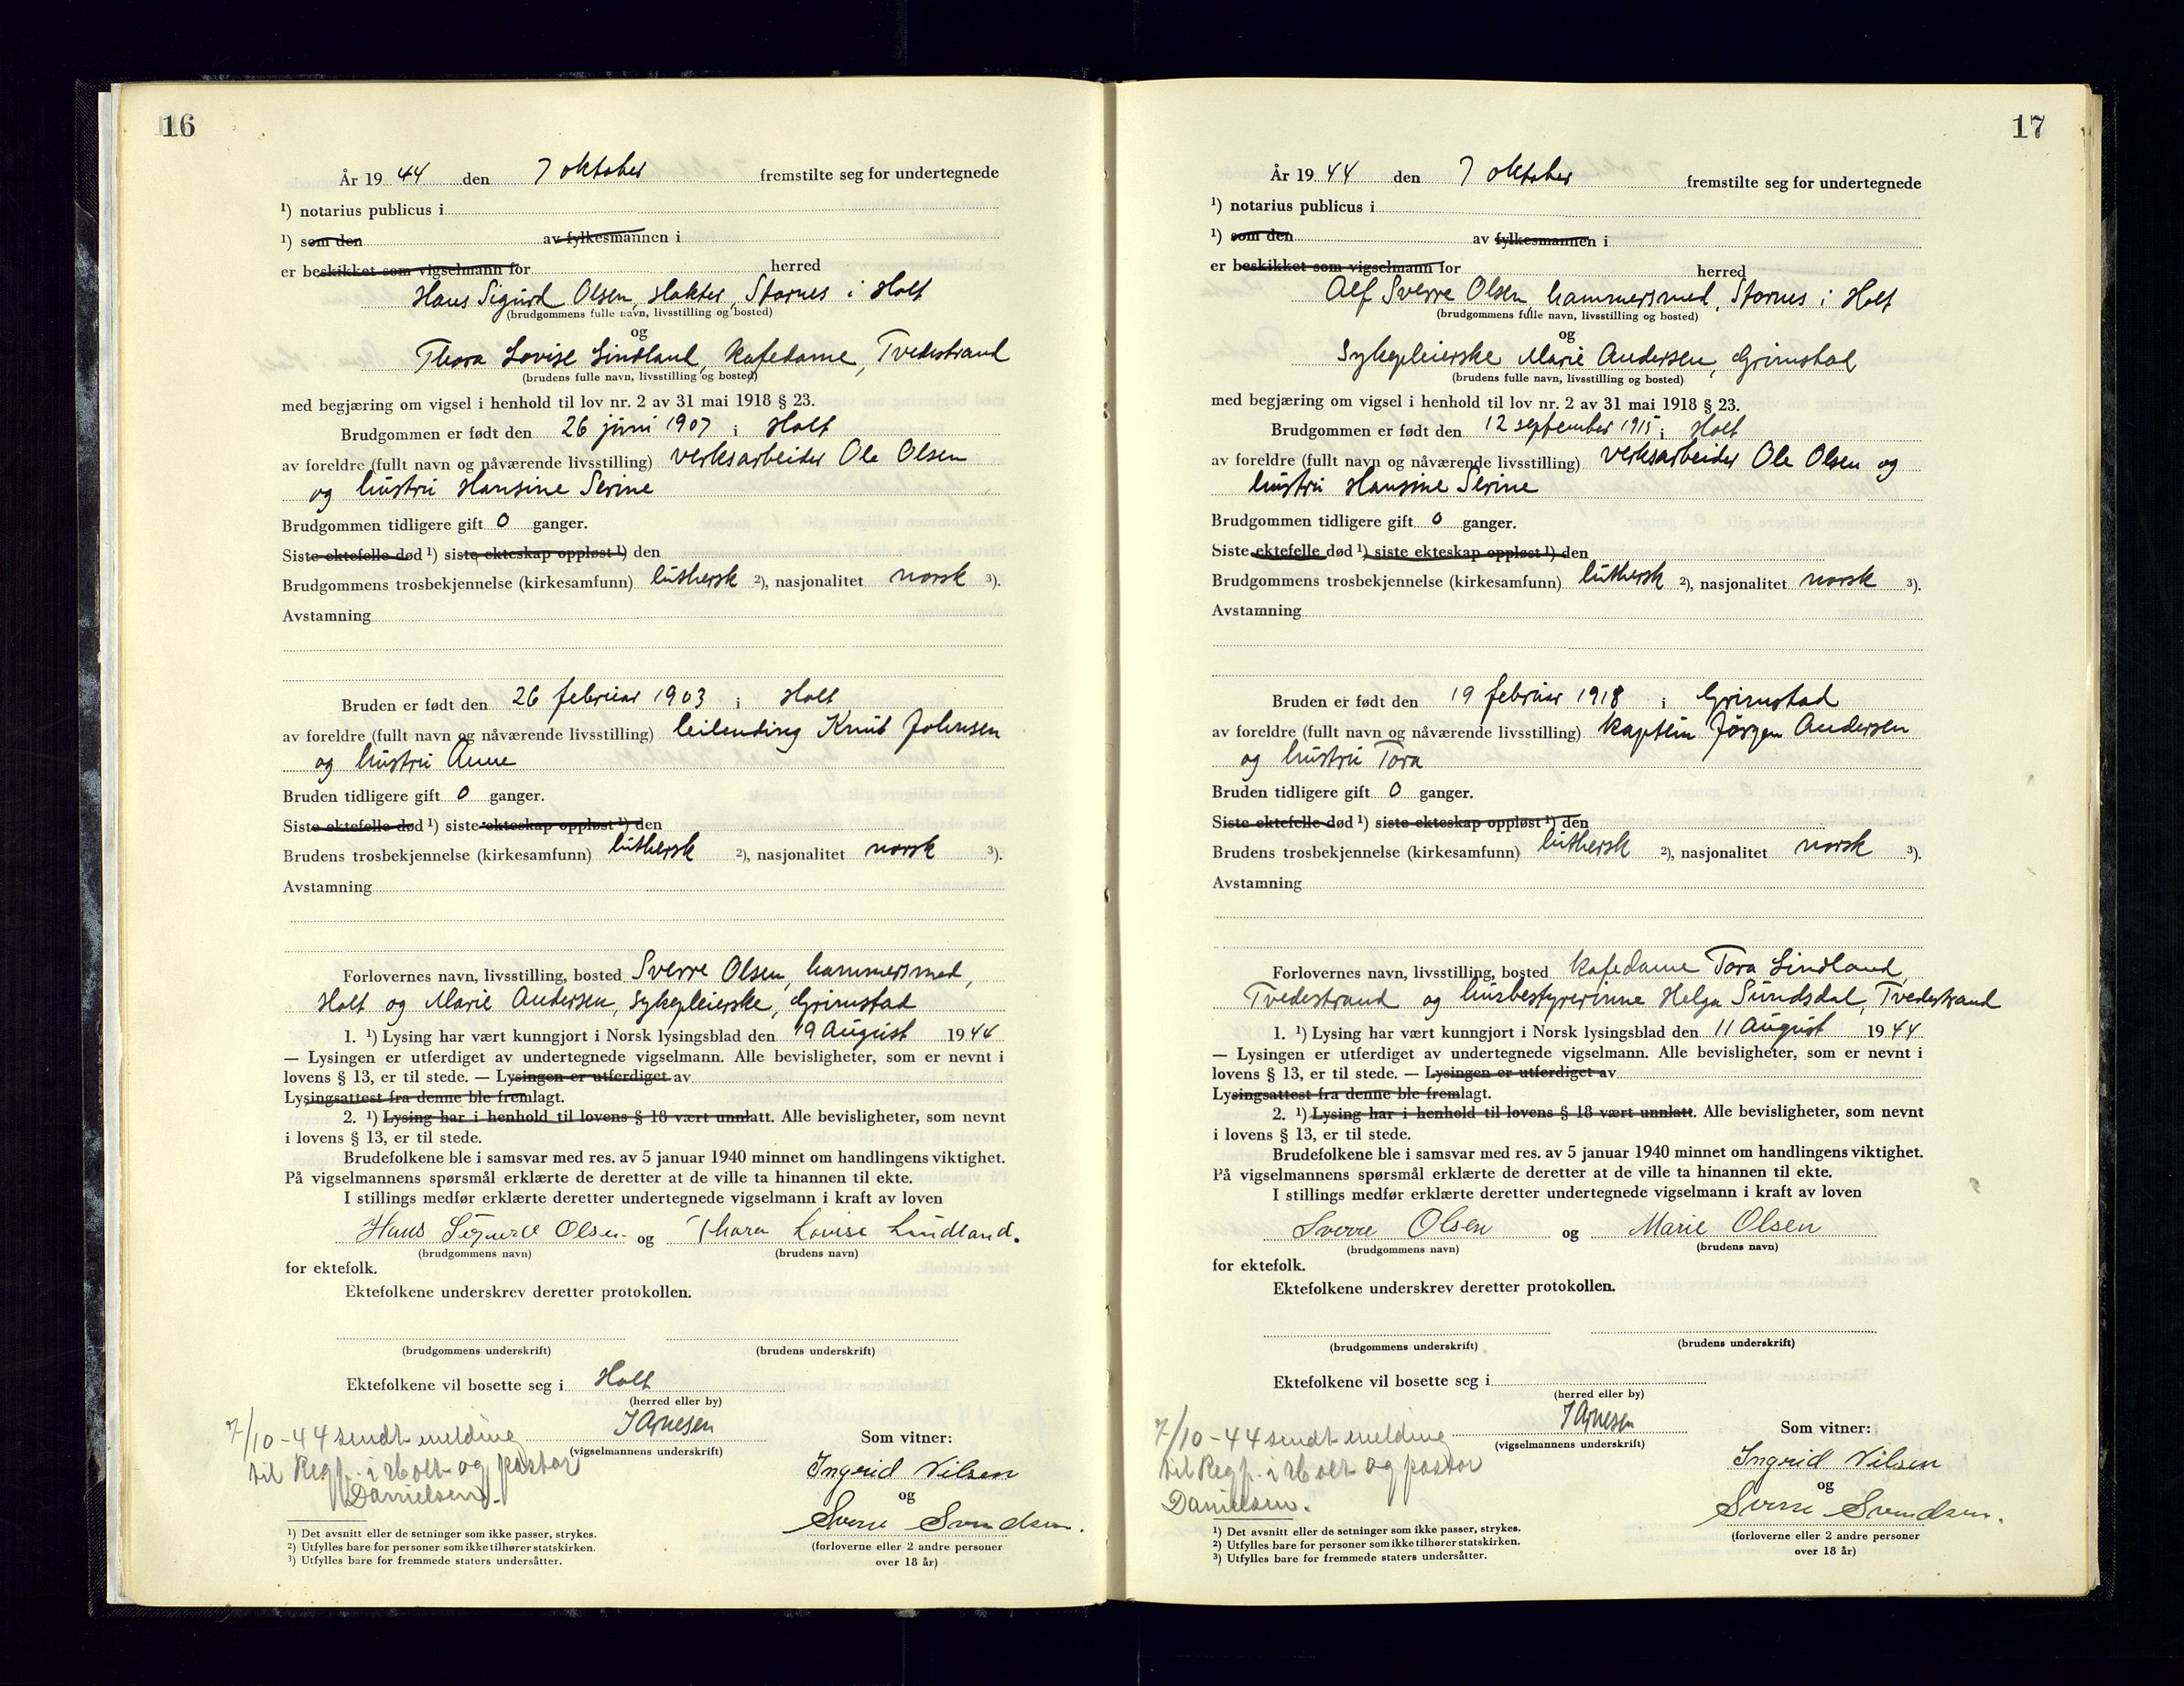 16
År 19 44 den 7 oktober fremstilte seg for undertegnede
¹) notarius publicus i
¹) som den av fylkesmannen i
er beskikket som vigselmann for herred
Hans Sigurd Olsen, slakter, Stornes i Holt
(brudgommens fulle navn, livsstilling og bosted)
og
Thora Lovise Lindland, kafedame, Tvedestrand
(brudens fulle navn, livsstilling og bosted)
med begjæring om vigsel i henhold til lov nr. 2 av 31 mai 1918 § 23.
Brudgommen er født den 26 juni 1907 i Holt
av foreldre (fullt navn og nåværende livsstilling) verksarbeider Ole Olsen
og hustru Hansine Serine
Brudgommen tidligere gift 0 ganger.
Siste ektefelle død ¹) siste ekteskap oppløst ¹) den
Brudgommens trosbekjennelse (kirkesamfunn) luthersk ²), nasjonalitet norsk ³).
Avstamning
Bruden er født den 26 februar 1903 i Holt
av foreldre (fullt navn og nåværende livsstilling) leilending Knut Johnsen
og hustru Anne
Bruden tidligere gift 0 ganger.
Siste ektefelle død ¹) siste ekteskap oppløst ¹) den
Brudens trosbekjennelse (kirkesamfunn) luthersk ²), nasjonalitet norsk ³).
Avstamning
Forlovernes navn, livsstilling, bosted Sverre Olsen, hammersmed,
Holt og Marie Andersen, sykepleierske, Grimstad
1. ¹) Lysing har vært kunngjort i Norsk lysingsblad den 19 August 1944
— Lysingen er utferdiget av undertegnede vigselmann. Alle bevisligheter, som er nevnt i
lovens § 13, er til stede. — Lysingen er utferdiget av
Lysingsattest fra denne ble fremlagt.
2. ¹) Lysing har i henhold til lovens § 18 vært unnlatt. Alle bevisligheter, som nevnt
i lovens § 13, er til stede.
Brudefolkene ble i samsvar med res. av 5 januar 1940 minnet om handlingens viktighet.
På vigselmannens spørsmål erklærte de deretter at de ville ta hinannen til ekte.
I stillings medfør erklærte deretter undertegnede vigselmann i kraft av loven
Hans Sigurd Olsen og Thora Lovise Lindland.
(brudgommens navn) (brudens navn)
for ektefolk.
Ektefolkene underskrev deretter protokollen.
(brudgommens underskrift) (brudens underskrift)
Ektefolkene vil bosette seg i Holt
(herred eller by)
7/10-44 sendt melding
(vigselmannens underskrift)
til Regf. i Holt og pastor
Danielsen.
Som vitner:
Ingrid Nilsen
og
Sverre Svendsen.
(forloverne eller 2 andre personer
over 18 år)
¹) Det avsnitt eller de setninger som ikke passer, strykes.
²) Utfylles bare for personer som ikke tilhører statskirken.
³) Utfylles bare for fremmede staters undersåtter.
17
År 19 44 den 7 oktober fremstilte seg for undertegnede
¹) notarius publicus i
¹) som den av fylkesmannen i
er beskikket som vigselmann for herred
Alf Sverre Olsen, hammersmed, Stornes i Holt
(brudgommens fulle navn, livsstilling og bosted)
og
Sykepleierske Marie Andersen, Grimstad
(brudens fulle navn, livsstilling og bosted)
med begjæring om vigsel i henhold til lov nr. 2 av 31 mai 1918 § 23.
Brudgommen er født den 12 september 1915 i Holt
av foreldre (fullt navn og nåværende livsstilling) verksarbeider Ole Olsen og
hustru Hansine Serine
Brudgommen tidligere gift 0 ganger.
Siste ektefelle død ¹) siste ekteskap oppløst ¹) den
Brudgommens trosbekjennelse (kirkesamfunn) luthersk ²), nasjonalitet norsk ³).
Avstamning
Bruden er født den 19 februar 1918 i Grimstad
av foreldre (fullt navn og nåværende livsstilling) kaptein Jørgen Andersen
og hustru Tora
Bruden tidligere gift 0 ganger.
Siste ektefelle død ¹) siste ekteskap oppløst ¹) den
Brudens trosbekjennelse (kirkesamfunn) luthersk ²), nasjonalitet norsk ³).
Avstamning
Forlovernes navn, livsstilling, bosted kafedame Tora Lindland,
Tvedestrand og husbestyrerinne Helga Sundsdal, Tvedestrand
1. ¹) Lysing har vært kunngjort i Norsk lysingsblad den 11 August 1944
— Lysingen er utferdiget av undertegnede vigselmann. Alle bevisligheter, som er nevnt i
lovens § 13, er til stede. — Lysingen er utferdiget av
Lysingsattest fra denne ble fremlagt.
2. ¹) Lysing har i henhold til lovens § 18 vært unnlatt. Alle bevisligheter, som nevnt
i lovens § 13, er til stede.
Brudefolkene ble i samsvar med res. av 5 januar 1940 minnet om handlingens viktighet.
På vigselmannens spørsmål erklærte de deretter at de ville ta hinannen til ekte.
I stillings medfør erklærte deretter undertegnede vigselmann i kraft av loven
Sverre Olsen og Marie Olsen
(brudgommens navn) (brudens navn)
for ektefolk.
Ektefolkene underskrev deretter protokollen.
(brudgommens underskrift) (brudens underskrift)
Ektefolkene vil bosette seg i
(herred eller by)
7/10-44 sendt melding
(vigselmannens underskrift)
til Regf. i Holt og pastor
Danielsen.
Som vitner:
Ingrid Nilsen
og
Sverre Svendsen.
(forloverne eller 2 andre personer
over 18 år)
¹) Det avsnitt eller de setninger som ikke passer, strykes.
²) Utfylles bare for personer som ikke tilhører statskirken.
³) Utfylles bare for fremmede staters undersåtter.